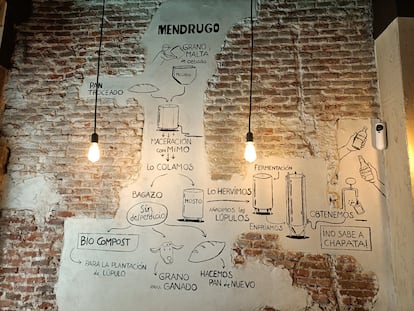 MENDRUGO
GRANO
MALTA
DE CEBADA
PAN
TROCEADO
MACERACIÓN
CON MIMO
LO COLAMOS
BAGAZO
SIN
desperdicio
MOSTO
LO HERVIMOS
AÑADIMOS los
LÚPULOS
FERMENTACIÓN
ENFRIAMOS
OBTENEMOS
¡NO SABE A
CHAPATA!
BIO COMPOST
PARA LA PLANTACIÓN
de LÚPULO
GRANO
PARA
GANADO
HACEMOS
PAN DE NUEVO